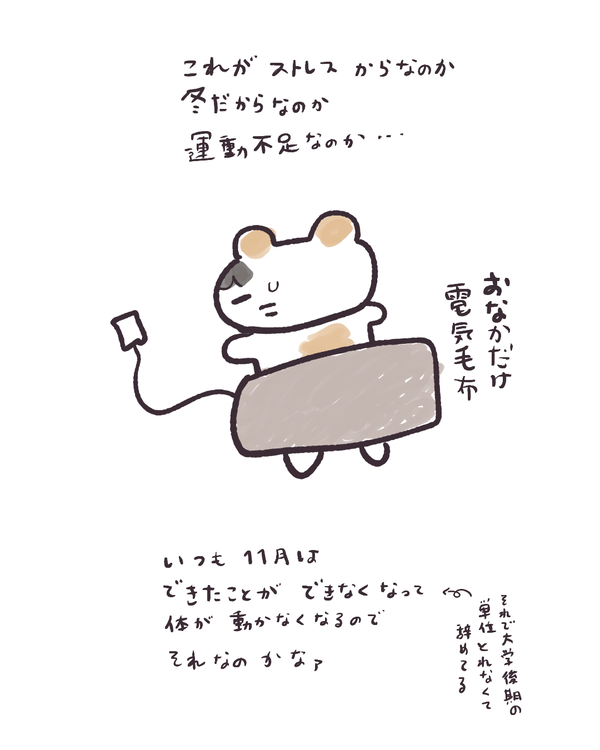 これが ストレス からなのか
冬だからなのか
運動不足なのか…
おなかだけ
電気毛布
いつも 11月は
できたことが できなくなって
体が 動かなくなるので
それなの かなァ
それで大学後期の
単位とれなくて
辞めてる